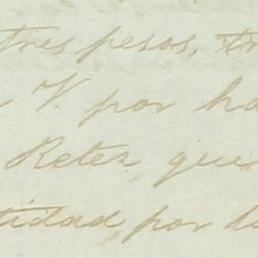 tres pesos, tr
V. por ha
Retes, que
tidad, por lo